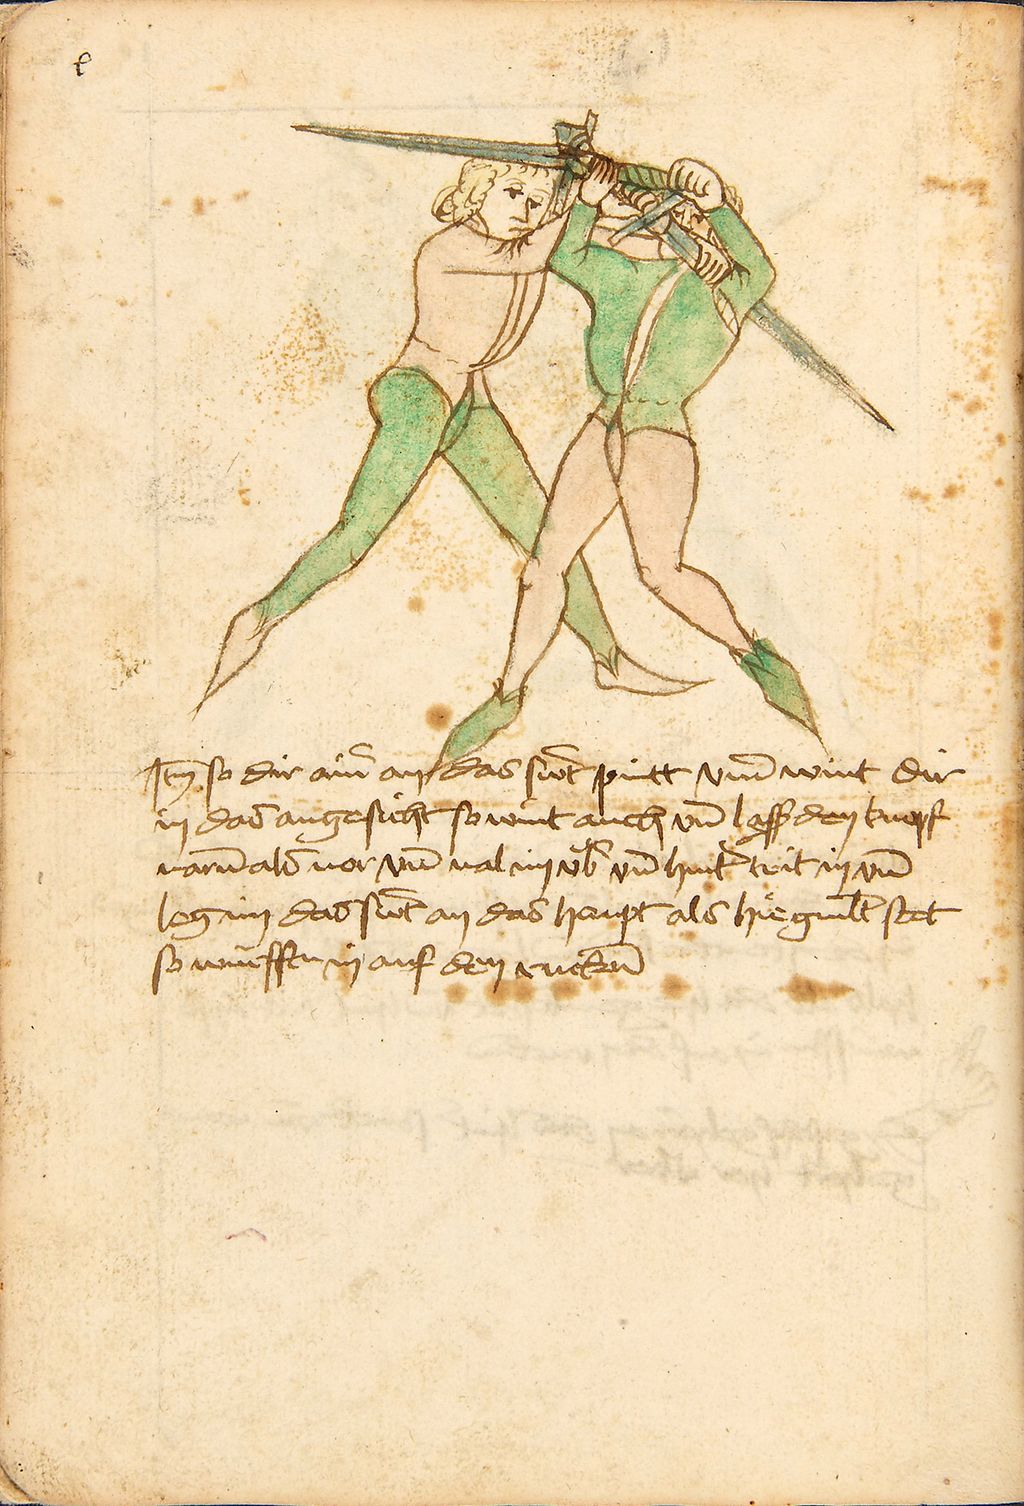 e
Itm̃ so dir ainr̃ an das swt̃ pintt vnd̃ wint dir
in das angesicht so wint auch vñ lasß den knopf
varñ als vor vñ val im vb̃ vñ hint̃ trit in vñ
leg im das swt̃ an das haupt als hie gmalt stet
so wirffstu in auf den rucken̄